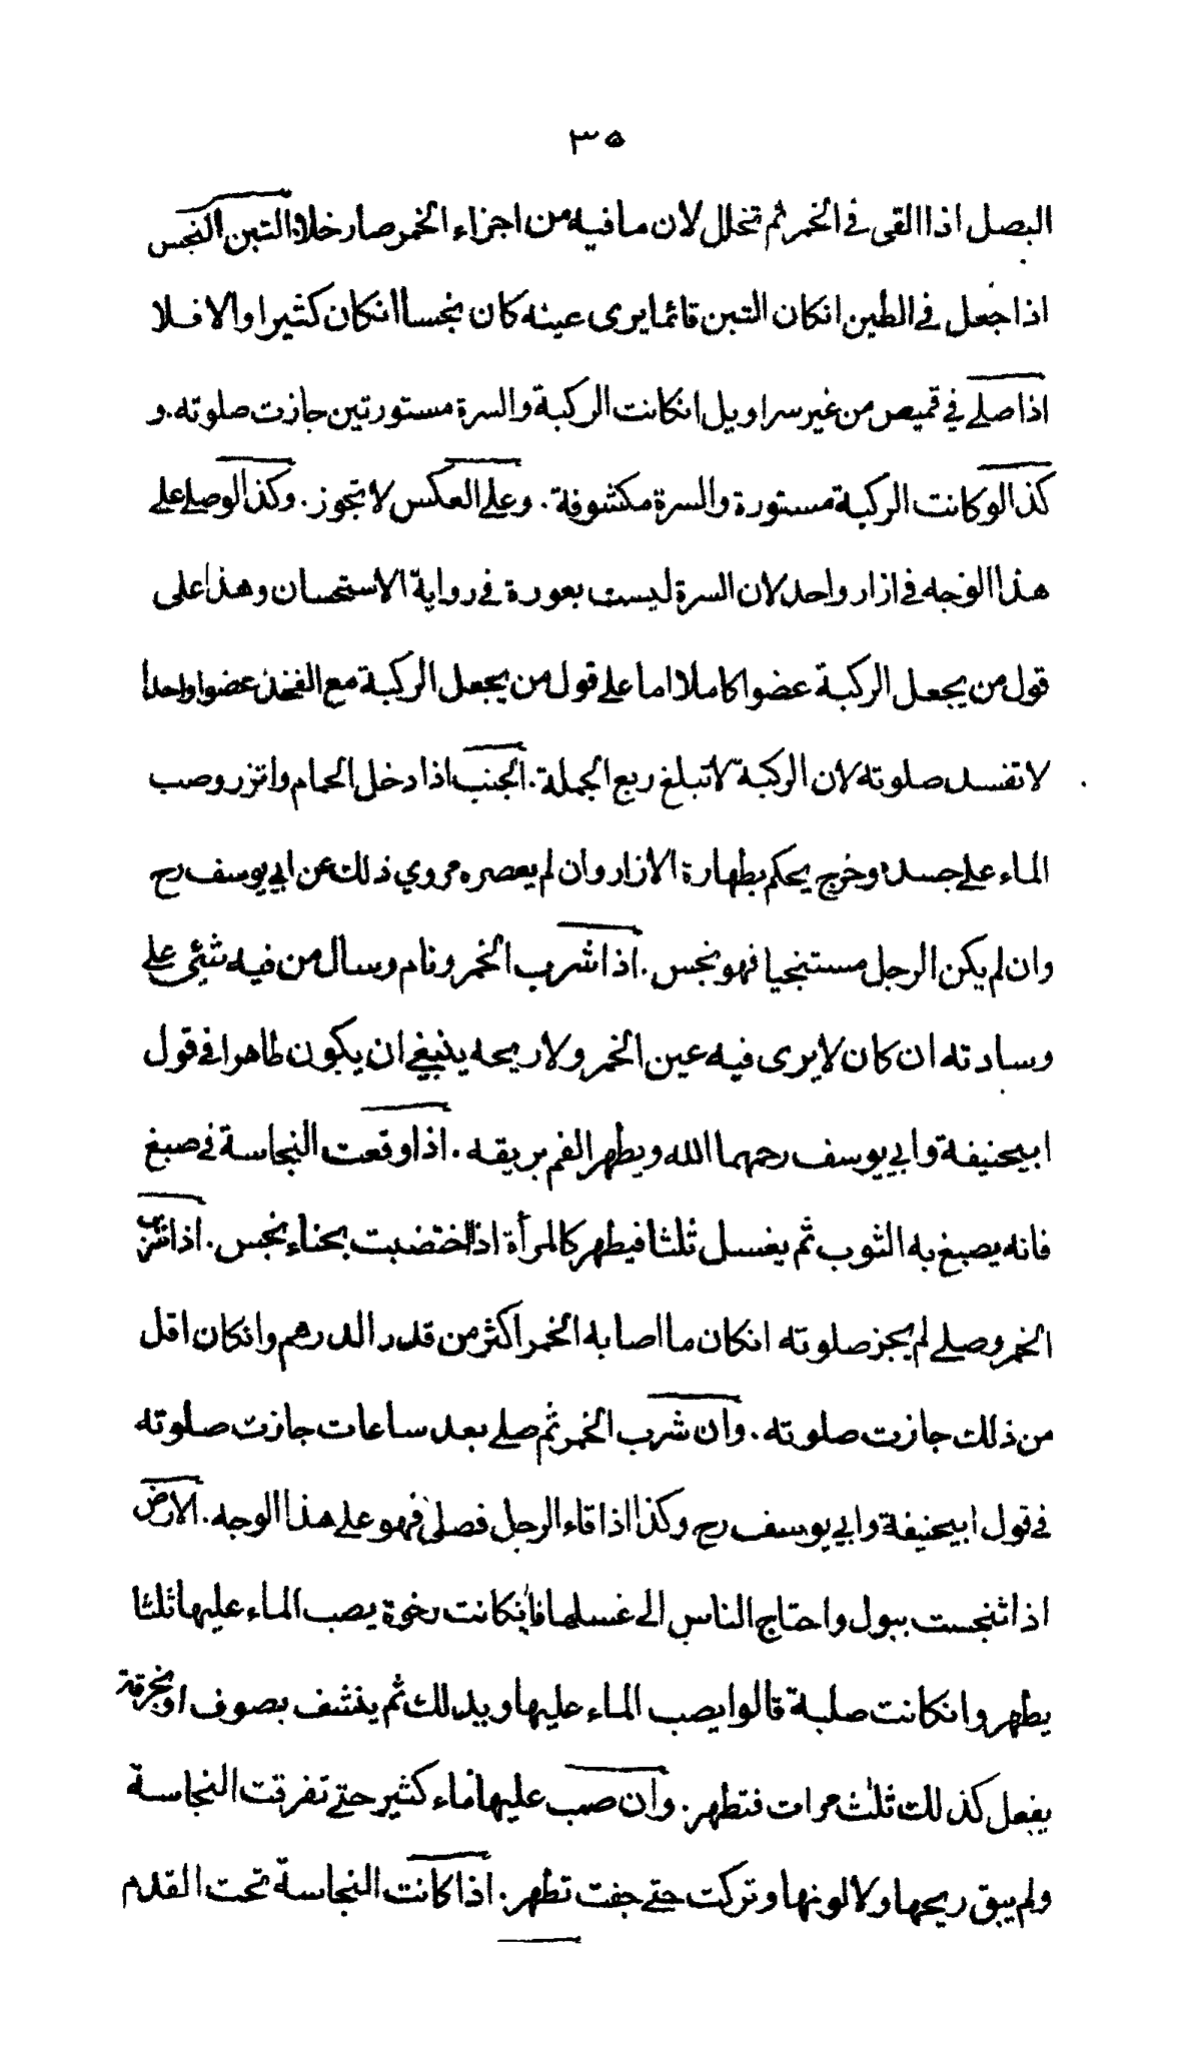 ٣٥
البصل اذا القى في الخمر ثم تخلل لان ما فيه من اجزاء الخمر صار خلا. التبن النجس
اذا جعل في الطين انكان التبن قائما يرى عينه كان نجسا انكان كثيرا والا فلا
اذا صلے في قميص من غير سراويل انكانت الركبة والسرة مستورتين جازت صلوته. و
كذا لو كانت الركبة مستورة والسرة مكشوفة. وعلے العكس لا تجوز. وكذا لو صلے علے
هذا الوجه في ازار واحد لان السرة ليست بعورة في رواية الاستحسان وهذا على
قول من يجعل الركبة عضوا كاملا اما علے قول من يجعل الركبة مع الفخذ عضوا واحدا
لا تفسد صلوته لان الركبة لا تبلغ ربع الجملة. الجنب اذا دخل الحمام واتزر وصب
الماء علے جسده وخرج يحكم بطهارة الازار وان لم يعصره مروي ذلك عن ابي يوسف رح
وان لم يكن الرجل مستنجيا فهو نجس. اذا شرب الخمر ونام وسال من فيه شئي علے
وسادته ان كان لا يرى فيه عين الخمر ولا ريحه ينبغي ان يكون طاهرا في قول
ابيحنيفة وابي يوسف رحمهما الله ويطهر الفم بريقه. اذا وقعت النجاسة في صبغ
فانه يصبغ به الثوب ثم يغسل ثلثا فيطهر كالمرأة اذا اختضبت بحناء نجس. اذا شرب
الخمر وصلے لم يجز صلوته انكان ما اصابه الخمر اكثر من قدر الدرهم وانكان اقل
من ذلك جازت صلوته. وان شرب الخمر ثم صلے بعد ساعات جازت صلوته
في قول ابيحنيفة وابي يوسف رح وكذا اذا قاء الرجل فصلى فهو علے هذا الوجه. الارض
اذا تنجست ببول واحتاج الناس الى غسلها فانكانت رخوة يصب الماء عليها ثلثا
يطهر وانكانت صلبة قالوا يصب الماء عليها ويدلك ثم ينشف بصوف او بخرقة
يفعل كذلك ثلث مرات فتطهر. وان صب عليها ماء كثير حتے تفرقت النجاسة
ولم يبق ريحها ولا لونها وتركت حتے جفت تطهر. اذا كانت النجاسة تحت القدم